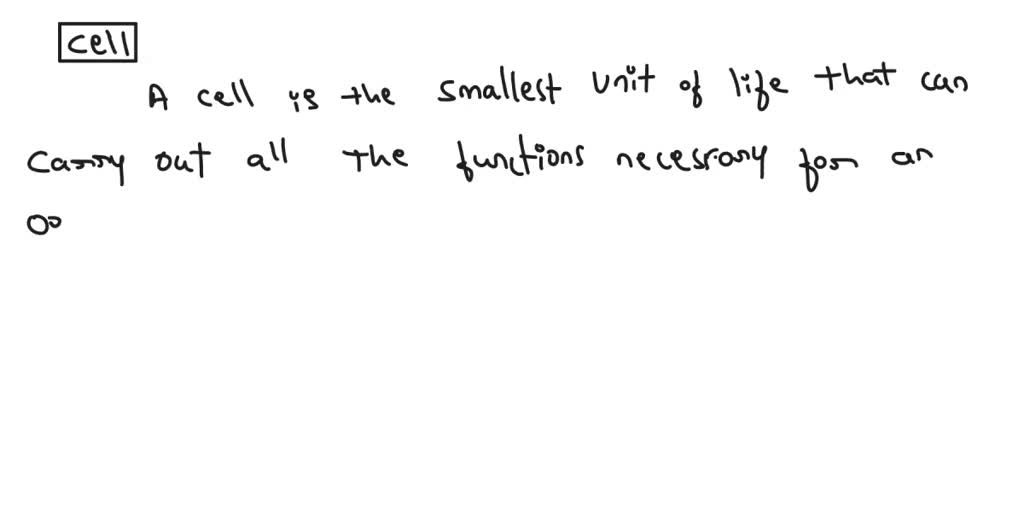 cell
A cell is the smallest unit of life that can
carry out all the functions necessary for an
or